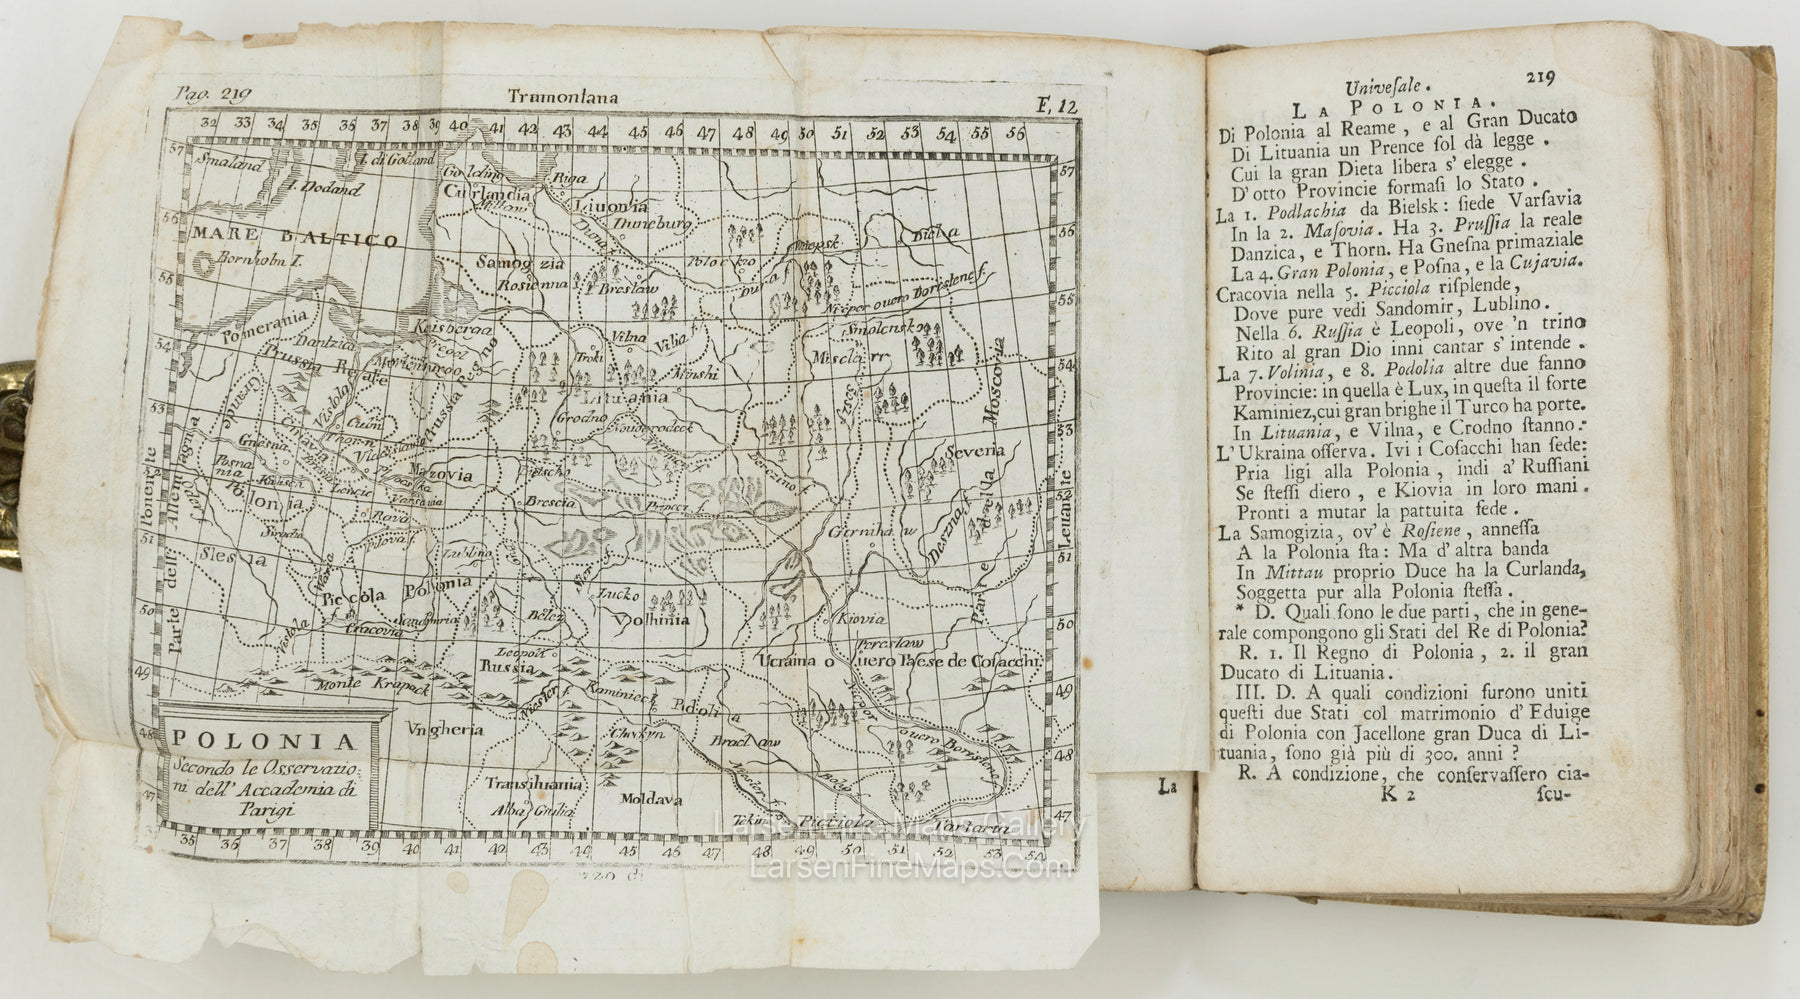 Pag. 219
Tramontana
F. 12
32 33 34 35 36 37 38 39 40 41 42 43 44 45 46 47 48 49 50 51 52 53 54 55 56
57
Smaland
I. di Gotland
Goldino
Riga
57
I. Dodand
Curlandia
Mittaw
Liuonia
Duneburg
56
MARE BALTICO
Duna
Witepsk
Biela
56
Bornholm I.
Samogizia
Polocko
55
Rosienna
Breslaw
Duna f.
Nieper ouero Boristene f.
55
Pomerania
Konisberga
Vilna
Vilia f.
Smolensko
54
Dantzica
Pregel
Troki
Misclaw
54
Prussia Reale
Marienburgo
Minski
Moscovita
Vistola
Prussia Regno
Lituania
Grande
Culm
Grodno
Nouogrodeck
53
Thorn
53
Gnesna
Cuiavia
Severia
Posnania
Mazovia
Berezino f.
52
Kalisch
Lencic
Varsavia
Brescia
Pripeci f.
52
Polonia
Rava
Ponente
Leuante
Parte dell' Allemagna
Parte della Moscovita
Siradia
Czernihaw
Deszna f.
51
Slesia
Lublino
51
Varta
Piccola Polonia
Lucko
50
Sandomiria
Belcz
Volhinia
Kiovia
50
Vistola f.
Cracovia
Leopoli
Pereslaw
Russia
Ucraina o uero Paese de Cosacchi
49
Monte Krapack
Kaminieck
49
Niester f.
Podolia
Nieper ouero Boristene f.
48
Vngheria
Braclaw
48
POLONIA
Secondo le Osservatio-
ni dell' Accademia di
Parigi
Transiluania
Alba Giulia
Moldava
Niester f.
Bog f.
47
Picciola Tartaria
47
35 36 37 38 39 40 41 42 43 44 45 46 47 48 49 50 51 52 53 54
Larsen Fine Maps Gallery
LarsenFineMaps.Com
La
Univeſale.
219
LA POLONIA.
Di Polonia al Reame, e al Gran Ducato
Di Lituania un Prence ſol dà legge.
Cui la gran Dieta libera s' elegge.
D' otto Provincie formaſi lo Stato.
La 1. Podlachia da Bielsk: ſiede Varſavia
In la 2. Maſovia. Ha 3. Pruſſia la reale
Danzica, e Thorn. Ha Gneſna primaziale
La 4. Gran Polonia, e Poſna, e la Cujavia.
Cracovia nella 5. Picciola riſplende,
Dove pure vedi Sandomir, Lublino.
Nella 6. Ruſſia è Leopoli, ove 'n trino
Rito al gran Dio inni cantar s' intende.
La 7. Volinia, e 8. Podolia altre due fanno
Provincie: in quella è Lux, in queſta il forte
Kaminiez, cui gran brighe il Turco ha porte.
In Lituania, e Vilna, e Crodno ſtanno.
L' Ukraina oſſerva. Ivi i Coſacchi han ſede:
Pria ligi alla Polonia, indi a' Ruſſiani
Se ſteſſi diero, e Kiovia in loro mani.
Pronti a mutar la pattuita fede.
La Samogizia, ov' è Roſiene, anneſſa
A la Polonia ſta: Ma d' altra banda
In Mittau proprio Duce ha la Curlanda,
Soggetta pur alla Polonia ſteſſa.
* D. Quali ſono le due parti, che in gene-
rale compongono gli Stati del Re di Polonia?
R. 1. Il Regno di Polonia, 2. il gran
Ducato di Lituania.
III. D. A quali condizioni furono uniti
queſti due Stati col matrimonio d' Eduige
di Polonia con Jacellone gran Duca di Li-
tuania, ſono già più di 300. anni?
R. A condizione, che conſervaſſero cia-
K 2
ſcu-